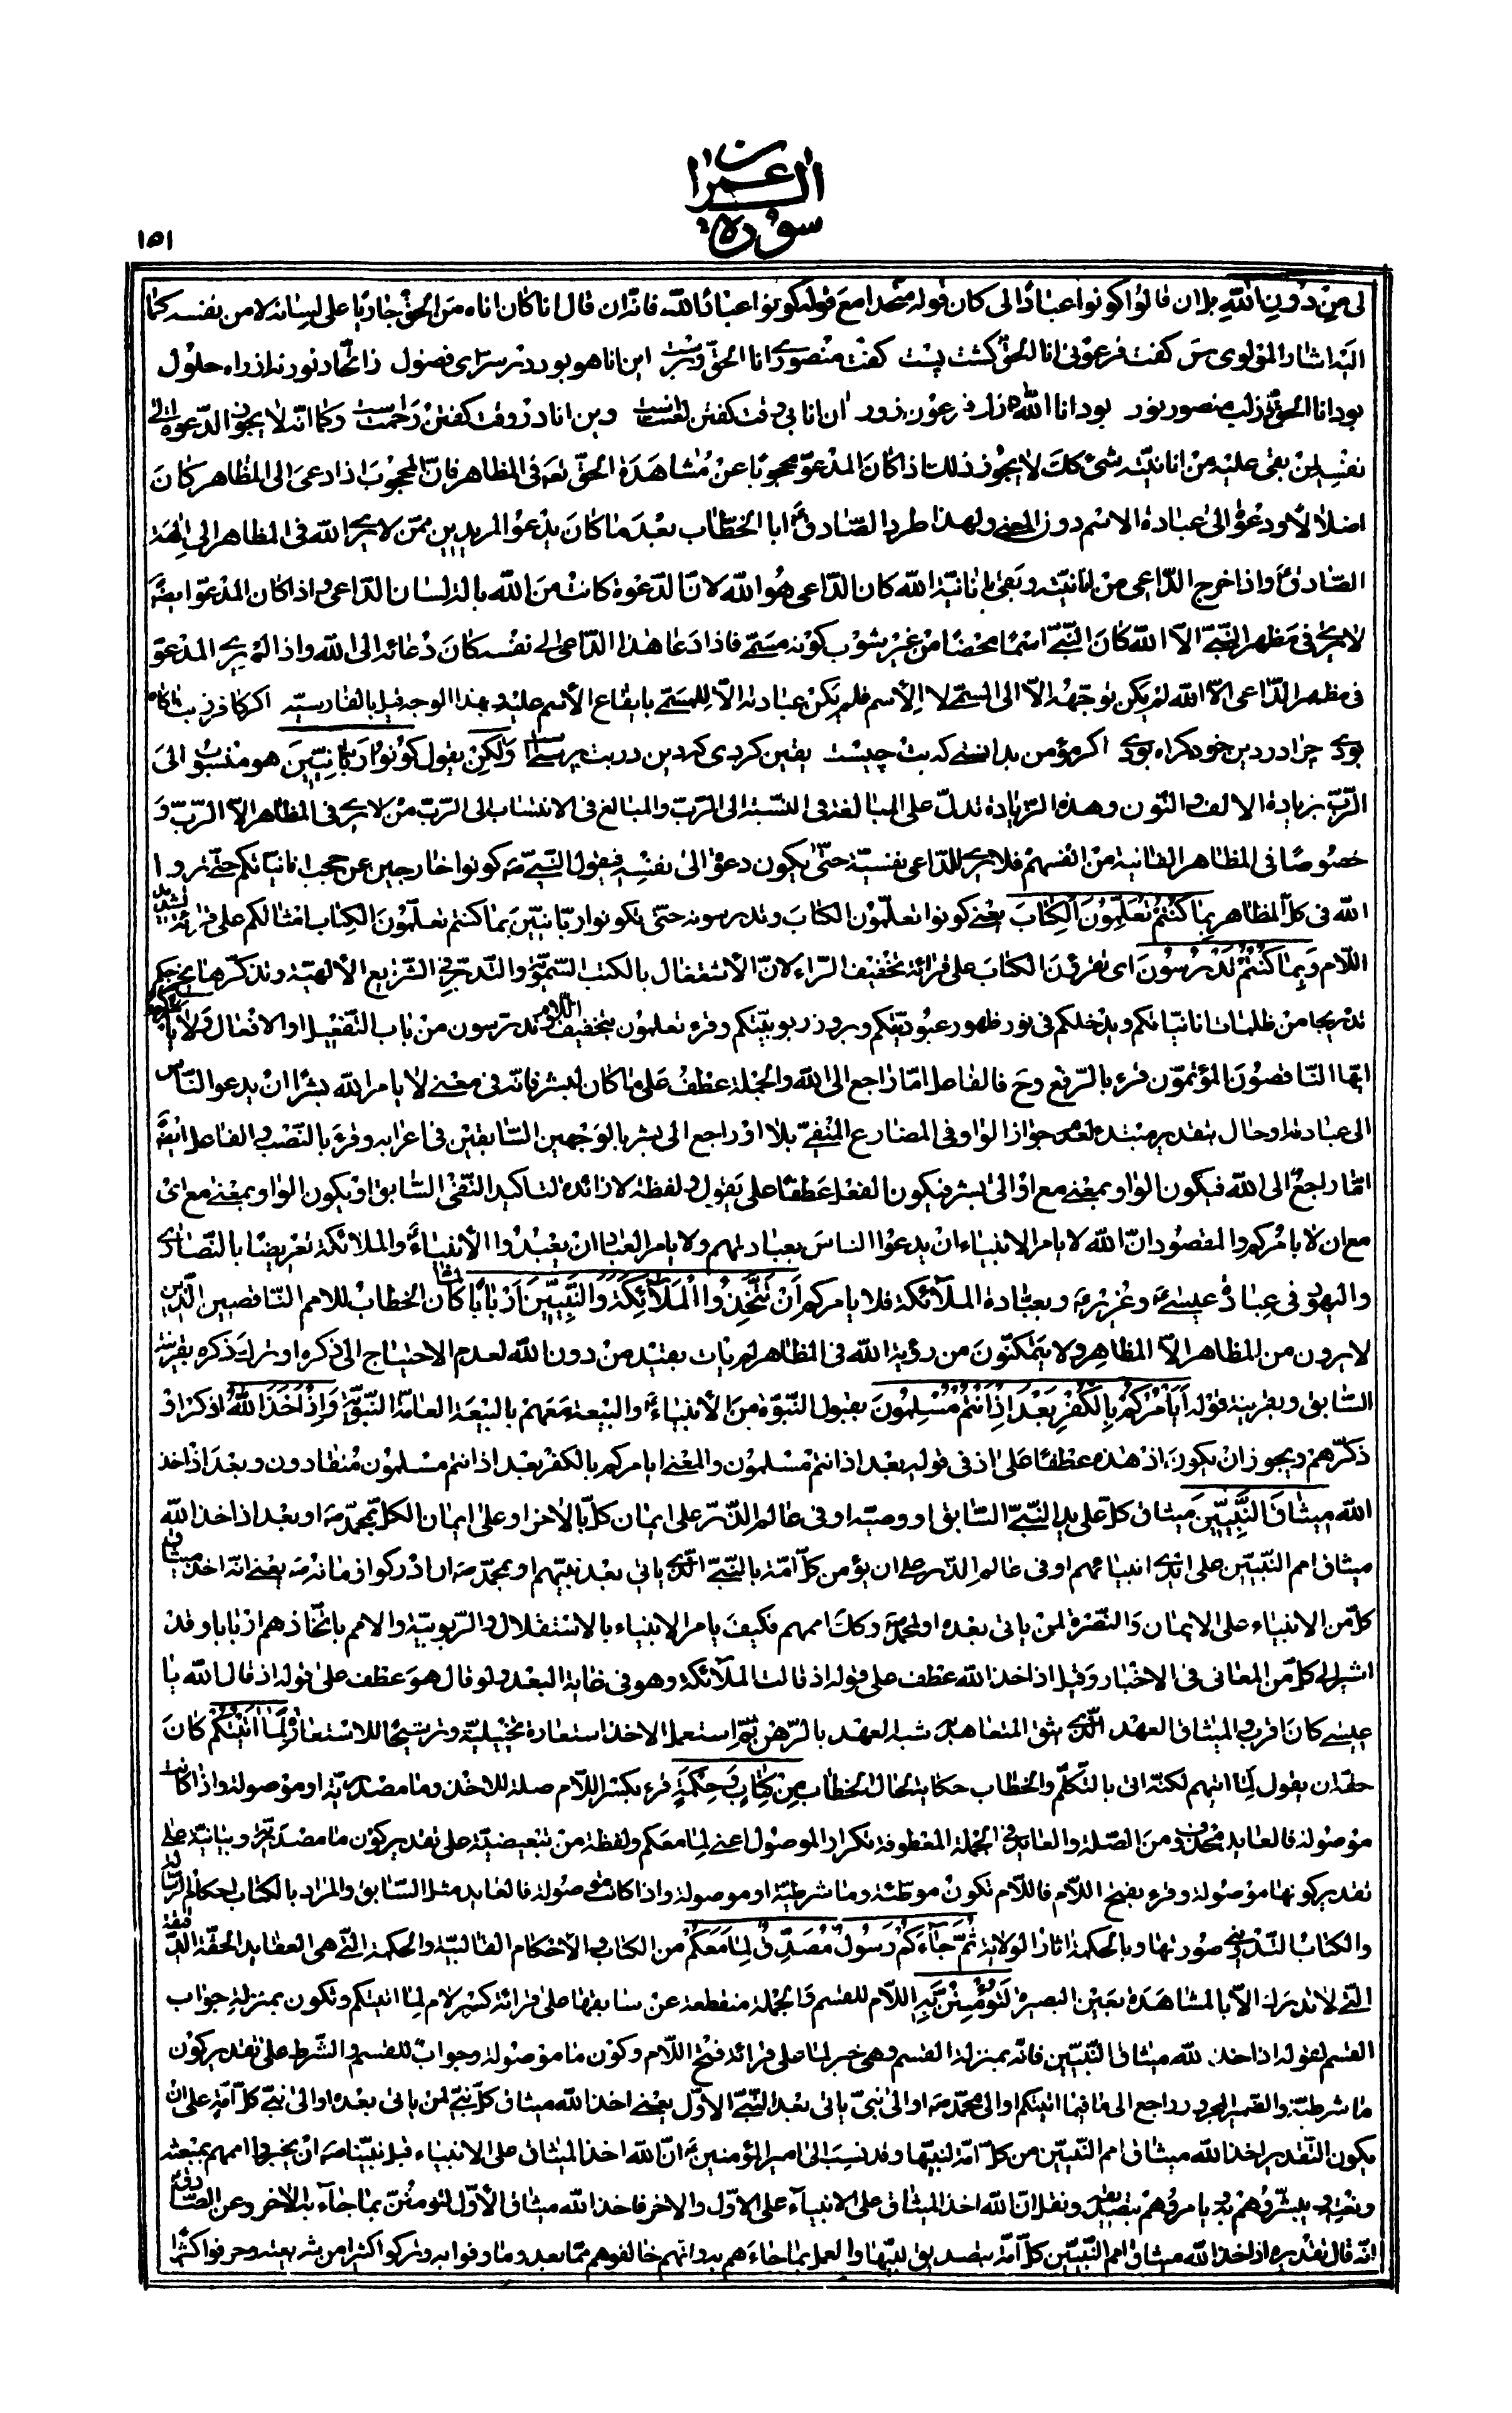 سورة
آل عمران
١٥١
لى مِنْ دُونِ اللّهِ بل ان قالوا كونوا عباداً لى كان قوله متّحداً مع قوله كونوا عباداً للّه فانّه ان قال انا كان اناه من الحقّ جارياً على لسانه لا من نفسه كما
اليه اشار المولوى گفت فرعونى انا الحقّ گشت پست گفت منصورى انا الحقّ و برست اين انا هو بود در سرّ اى فضول ز اتّحاد نور نه از راه حلول
بود انا الحقّ در لب منصور نور بود انا اللّه در لب فرعون زور آن انا بى وقت گفتن لعنتست وين انا در وقت گفتن رحمتست وكما انّه لا يجوز الدّعوة الى
نفسه لمن بقى عليه من انانيّته شىء كك لا يجوز ذلك اذا كان المدعوّ محجوباً عن مشاهدة الحقّ تعه فى المظاهر فانّ المحجوب اذا دعى الى المظاهر كان
اضلالاً ودعوة الى عبادة الاسم دون المعنى ولهذا طرد الصّادق ابا الخطّاب بعد ما كان يدعو المريدين ممّن لا يرى اللّه فى المظاهر الى الهة
الصّادق واذا خرج الدّاعى من انانيّته وبقى بانانيّة اللّه كان الدّاعى هو اللّه لانّ الدّعوة كانت من اللّه بالة لسان الدّاعى واذا كان المدعوّ ايضاً
لا يرى فى مظهر النّبىّ الّا اللّه كان النّبىّ اسماً محضاً من غير شوب كونه مسمّى فاذا دعا هذا الدّاعى الى نفسه كان دعائه الى اللّه واذا لم ير المدعوّ
فى مظهر الدّاعى الّا اللّه لم يكن توجّهه الّا الى المسمّى لا الاسم فلم يكن عبادته الّا للمسمّى بايقاع الأسم عليه وبهذا الوجه قيل بالفارسيّة اگر كافر ز بت آگاه
بودى چرا در دين خود گمراه بودى اگر مؤمن بدانستى كه بت چيست يقين كردى كه دين در بت پرستى است وَلٰكِنْ يقول كُونُوا رَبّٰانِيّينَ هو منسوب الى
الرّبّ بزيادة الالف والنّون وهذه الزّيادة تدلّ على المبالغة فى النّسبة الى الرّبّ والمبالغ فى الانتساب الى الرّبّ من لا يرى فى المظاهر الّا الرّبّ و
خصوصاً فى المظاهر الفانية من انفسهم فلا يرى للدّاعى نفسيّة حتّى يكون دعوة الى نفسه فيقول النّبىّ كونوا خارجين عن حجب انانيّاتكم حتّى تروا
اللّه فى كلّ المظاهر بِمٰا كُنْتُمْ تُعَلِّمُونَ الْكِتٰابَ يعنى كونوا تعلّمون الكتاب وتدرسونه حتّى تكونوا ربّانيّين بما كنتم تعلّمون الكتاب امثالكم على قرائة تشديد
اللّام وَبِمٰا كُنْتُمْ تَدْرُسُونَ اى تقرؤن الكتاب على قرائة تخفيف الرّاء لانّ الأشتغال بالكتب السّمويّة والتّدبّر فى الشّرايع الألهيّة وتذكّرها يخرجكم
تدريجا من ظلمات انانيّاتكم ويدخلكم فى نور ظهور عبوديّتكم وبروز ربوبيّتكم وقرء تعلمون بتخفيف اللّام وتدرّسون من باب التّفعيل او الافعال وَلاٰ يَأْمُرَكُمْ
ايّها النّاقصون المؤتمّون قرء بالرّفع وح فالفاعل امّا راجع الى اللّه والجملة عطف على ما كان لبشر فانّه فى معنى لا يأمر اللّه بشراً ان يدعو النّاس
الى عبادته او حال بتقدير مبتدء لعدم جواز الواو فى المضارع المنفىّ بلا او راجع الى بشر بالوجهين السّابقين فى اعرابه وقرء بالنّصب والفاعل ايضاً
امّا راجع الى اللّه فيكون الواو بمعنى مع او الى بشر فيكون الفعل عطفاً على يقول ولفظة لا زائدة لتاكيد النّفى السّابق او يكون الواو بمعنى مع اى
مع ان لا يأمركم والمقصود انّ اللّه لا يأمر الانبياء ان يدعوا الناس بعبادتهم ولا يأمر العباد ان يعبدوا الأنبياء والملائكة تعريضاً بالنّصارى
واليهود فى عبادة عيسى وعزير وبعبادة الملآئكة فلا يأمركم اَنْ تَتَّخِذُوا الْمَلآٰئِكَةَ وَالنَّبِيّينَ اَرْبٰاباً لمّا كان الخطاب للامم النّاقصين الّذين
لا يرون من المظاهر الّا المظاهر ولا يتمكّنون من رؤية اللّه فى المظاهر لم يأت بقيد من دون اللّه لعدم الاحتياج الى ذكره او ترك ذكره بقرينة
السّابق وبقرينة قوله اَيَأْمُرُكُمْ بِالْكُفْرِ بَعْدَ اِذْ اَنْتُمْ مُسْلِمُونَ بقبول النّبوّة من الأنبياء والبيعة معهم بالبيعة العامّة النّبويّة وَاِذْ اَخَذَ اللّٰهُ اذكر او
ذكّرهم ويجوز ان يكون اذ هذه عطفاً على اذ فى قوله بعد اذ انتم مسلمون والمعنى ايأمركم بالكفر بعد اذ انتم مسلمون منقادون وبعد اذ اخذ
اللّه مِيثٰاقَ النَّبِيّينَ ميثاق كلّ على يد النّبىّ السّابق او وصيّه او فى عالم الذّرّ على ايمان كلّ بالاخر او على ايمان الكلّ بمحمّد او بعد اذ اخذ اللّه
ميثاق امم النّبيّين على ايدى انبيائهم او فى عالم الذّر على ان يؤمن كلّ امّة بالنّبىّ الّذى يأتى بعد نبيّهم او بمحمّد ان ادركوا زمانه يعنى انّه اخذ ميثاق
كلّ من الانبياء على الايمان والنّصرة لمن يأتى بعده او لمحمّد وكك اممهم فكيف يأمر الانبياء بالاستقلال والرّبوبيّة والامم باتّخاذهم ارباباً وقد
اشير الى كلّ من المعانى فى الاخبار وقيل اذ اخذ اللّه عطف على قوله اذ قالت الملآئكة وهو فى غاية البعد ولو قال هو عطف على قوله اذ قال اللّه يا
عيسى كان اقرب والميثاق العهد الّذى يثق المتعاهدين شبه العهد بالرّهن ثمّ استعمل الاخذ استعارة تخييليّة وترشيحا للاستعارة لَمٰا اٰتَيْتُكُمْ كان
حقّه ان يقول لما اتيتهم لكنّه اتى بالتّكلّم والخطاب حكاية لحال الخطاب مِنْ كِتٰابٍ وَحِكْمَةٍ قرء بكسر اللّام صلة للاخذ وما مصدريّة او موصولة واذا كانت
موصولة فالعايد محذوف من الصّلة والعايد فى الجملة المعطوفة تكرار الموصول اعنى لما معكم ولفظة من تبعيضيّة على تقدير كون ما مصدريّة وبيانيّة على
تقدير كونها موصولة وقرء بفتح اللّام فاللّام تكون موطّئة وما شرطيّة او موصولة واذا كانت موصولة فالعايد مثل السّابق والمراد بالكتاب احكام الرّسالة
والكتاب التّدوينى صورتها وبالحكمة اثار الولاية ثُمَّ جٰآءَكُمْ رَسُولٌ مُصَدِّقٌ لِمٰا مَعَكُمْ من الكتاب والأحكام القالبيّة والحكمة الّتى هى العقايد الحقّة الدّقيقة
الّتى لا تدرك الّا بالمشاهدة بعين البصيرة لَتُؤْمِنُنَّ بِهِ اللّام للقسم والجملة منقطعة عن سابقها على قرائة كسر لام لما اتيتكم وتكون بمنزلة جواب
القسم لقوله اذ اخذ اللّه ميثاق النّبيّين فانّه بمنزلة القسم وهى خبر لما على قرائة فتح اللّام وكون ما موصولة وجواب للقسم والشّرط على تقدير كون
ما شرطيّة والضّمير المجرور راجع الى ما فى ما اتيتكم او الى محمّد او الى نبىّ يأتى بعد النّبىّ الاوّل يعنى اخذ اللّه ميثاق كلّ نبىّ لمن يأتى بعده او الى نبىّ كلّ امّة على ان
يكون التّقدير اخذ اللّه ميثاق امم النّبيّين من كلّ امّة لنبيّها وقد نسب الى امير المؤمنين انّ اللّه اخذ الميثاق على الانبياء قبل نبيّنا ان يخبروا اممهم بمبعثه
ونعته ويبشّروهم به ويأمروهم بتصديقه ونقل انّ اللّه اخذ الميثاق على الانبيآء على الاوّل والاخر فاخذ اللّه ميثاق الأوّل لتؤمننّ بما جآء به الاخر وعن الصّادق
انّه قال تقديره اذ اخذ اللّه ميثاق امم النّبيّين كلّ امّة بتصديق نبيّها والعمل بما جاءهم به وانّهم خالفوهم فيما بعد وما وفوا به وتركوا كثيراً من شريعته وحرفوا كثيراً